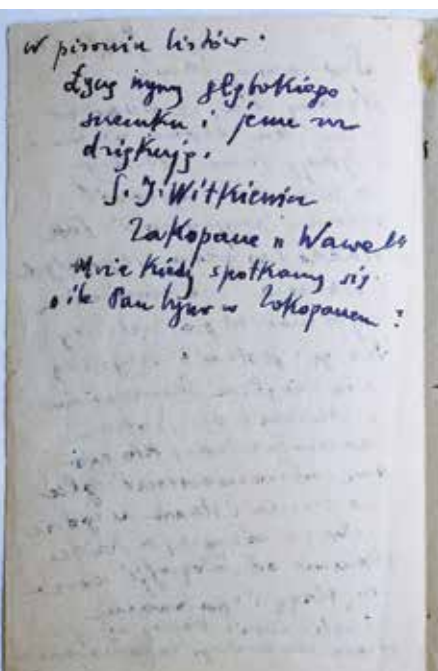 w pisaniu listów.
Łączę wyrazy głębokiego
szacunku i jeszcze raz
dziękuję.
S. I. Witkiewicz
Zakopane „Wawel”
Może kiedyś spotkamy się
o ile Pan bywa w Zakopanem?